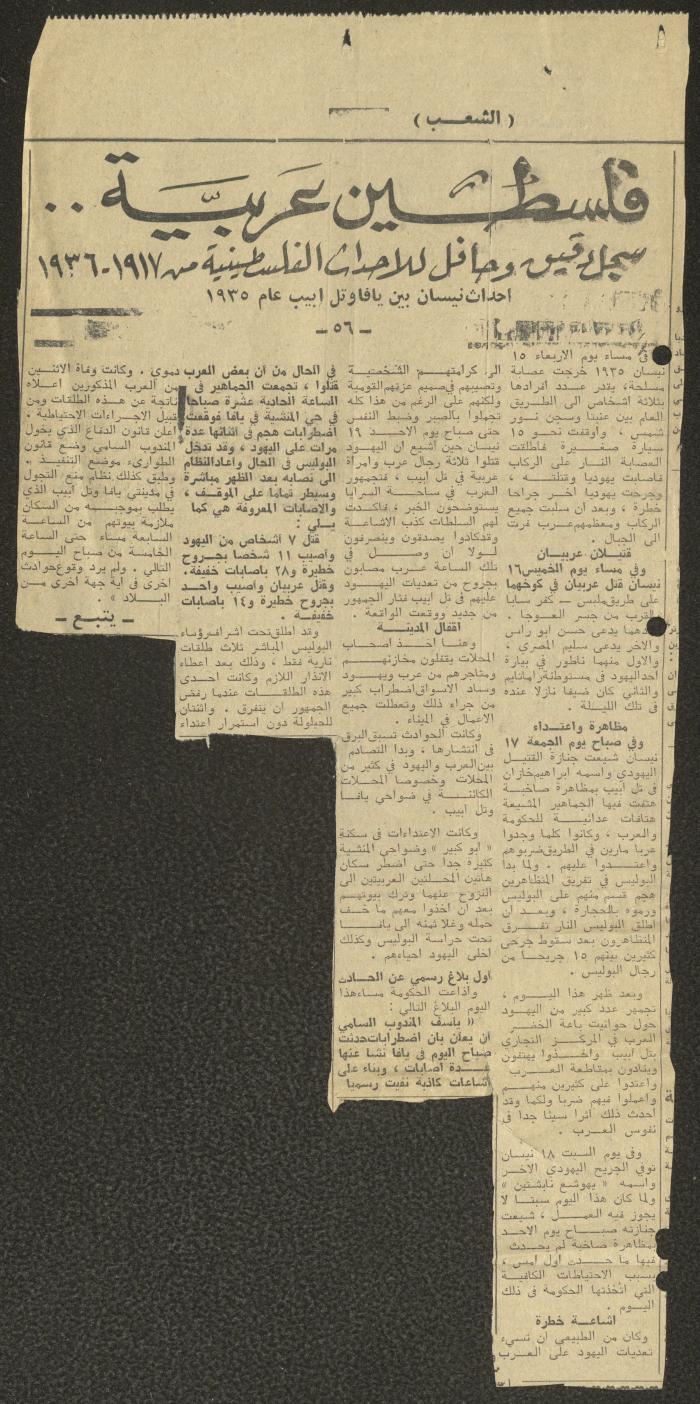 ( الشعـــب )
فلسطـــين عَربيّــة ..
سجل دقيق وحافل للاحداث الفلسطينية من ١٩١٧-١٩٣٦
احداث نيسان بين يافا وتل ابيب عام ١٩٣٥
ـ ٥٦ ـ
في مساء يوم الاربعاء ١٥
نيسان ١٩٣٥ خرجت عصابة
مسلحة، يقدر عـدد افرادها
بثلاثة اشخاص الى الطـــريق
العام بين عنبتا وسجن نـــور
شمس ، واوقفت نحــو ١٥
سيارة صغـــيرة فاطلقت
العصابة النـار على الركاب
فاصابت يهوديا وقتلتـــه ،
وجرحت يهوديا اخر جراحا
خطرة ، وبعد ان سلبت جميع
الركاب ومعظمهم عــرب فرت
الى الجبال .
قتيـــلان عربيــان
وفي مساء يوم الخميس ١٦
نيسان قتل عربيان في كوخهما
على طريق ملبس ــ كفر سابا
بالقرب من جسر العـوجا .
احدهما يدعى حسن ابو راس
والاخر يدعى سليم المصري ،
والاول منهما ناطور في بيارة
احد اليهود في مستوطنة رامتايم
والثاني كان ضيفا نازلا عنده
في تلك الليـلة .
مظاهرة واعتــداء
وفي صباح يوم الجمعة ١٧
نيسان شيعت جنازة القتيـل
اليهودي واسمه ابراهيم خازان
في تل ابيب بمظاهرة صاخبـة
هتفت فيها الجماهير المشيعة
هتافات عدائيــة للحكومة
والعرب ، وكانوا كلما وجدوا
عربا مارين في الطريق ضربوهم
واعتــدوا عليهم . ولما بدا
البوليس في تفريق المتظاهرين
هجم قسم منهم على البوليس
ورموه بالحجارة ، وبعــد ان
اطلق البوليس النار تفـــرق
المتظاهرون بعد سقوط جرحى
كثيرين بينهم ١٥ جريحـا من
رجال البوليس .
وبعد ظهر هذا اليــوم ،
تجمهر عدد كبير من اليهود
حول حوانيت باعة الخضـــر
العرب في المركـز التجاري
بتل ابيب واخـذوا يهتفون
وينادون بمقاطعة العـــرب
واعتدوا على كثيرين منهــم
واعملوا فيهم ضربا ولكما وقد
احدث ذلك اثرا سيئا جدا في
نفوس العــرب .
وفي يوم السبت ١٨ نيسان
توفي الجريح اليهودي الاخــر
واسمه « يهوشع نابشتين »
ولما كان هذا اليوم سبتـا لا
يجوز فيه العمــل ، شيعت
جنازته صبــاح يوم الاحــد
بمظاهرة صاخبة لم يحــدث
فيها ما حـــدث اول امس ،
بسبب الاحتياطات الكافيـة
التي اتخذتها الحكومة في ذلك
اليــوم .
اشاعــة خطرة
وكان من الطبيعي ان تسيء
تعديات اليهود على العــرب
الى كرامتهــم الشخصيــة
وتصيبهم في صميم عزتهم القومية
ولكنهم على الرغم من هذا كله
تجملوا بالصبر وضبط النفس
حتى صباح يوم الاحـــد ١٩
نيسان حين اشيع ان اليهــود
قتلوا ثلاثة رجال عرب وامراة
عربية في تل ابيب ، فتجمهور
العرب في ساحـــة السرايا
يستوضحون الخبر ، فاكــدت
لهم السلطات كذب الاشاعـة
وقد كادوا يصدقون وينصرفون
لــولا ان وصـــل في
تلك الساعة عــرب مصابون
بجروح من تعديات اليهــود
عليهم في تل ابيب فثار الجمهور
من جديد ووقعت الواقعة .
اقفال المدينـــة
وهنــا اخـــذ اصحــاب
المحلات يقفلون مخازنهـــم
ومتاجرهم من عرب ويهــود
وساد الاسواق اضطراب كبير
من جراء ذلك وتعطلت جميع
الاعمال في الميناء .
وكانت الحوادث تسبق البرق
في انتشارها ، وبدا التصادم
بين العرب واليهود في كثير من
المحلات وخصوصا المحــلات
الكائنـــة في ضواحي يافــا
وتل ابيب .
وكانت الاعتداءات في سكنة
« ابو كبير » وضواحي المنشية
كثيرة جدا حتى اضطر سكان
هاتين المحلتين العربيتين الى
النزوح عنهما وترك بيوتهــم
بعد ان اخذوا معهم ما خــف
حمله وغلا ثمنه الى يافــا
تحت حراسة البوليس وكذلك
اخلى اليهود احياءهم .
اول بلاغ رسمي عن الحادث
واذاعت الحكومة مساء هذا
اليوم البلاغ التالي :
« ياسف المندوب السامي
ان يعلن بان اضطرابات حدثت
صباح اليوم في يافا نشا عنها
عــدة اصابات ، وبناء على
اشاعات كاذبة نفيت رسميا
في الحال من ان بعض العرب
قتلوا ، تجمعت الجماهير في
الساعة الحادية عشرة صباحا
في حي المنشية في يافا فوقعت
اضطرابات هجم في اثنائها عدة
مرات على اليهود ، وقد تدخل
البوليس في الحال واعاد النظام
الى نصابه بعد الظهر مباشرة
وسيطر تماما على الموقــف ،
والاصابات المعروفة هي كما
يــلي :
قتل ٧ اشخاص من اليهود
واصيب ١١ شخصا بجــروح
خطيرة و٢٨ باصابات خفيفة.
وقتل عربيان واصيب واحــد
بجروح خطيرة و١٤ باصابات
خفيفــة .
وقد اطلق تحت اشراف رؤساء
البوليس المباشر ثلاث طلقات
نارية فقط ، وذلك بعد اعطاء
الانذار اللازم وكانت احـدى
هذه الطلقـات عندما رفض
الجمهور ان يتفرق . واثنتان
للحيلولة دون استمرار اعتداء
دموي . وكانت وفاة الاثنــين
من العرب المذكورين اعــلاه
ناتجة عن هــذه الطلقات ومن
قبيل الاجــراءات الاحتياطية ،
اعلن قانون الدفاع الذي يخول
المندوب السامي وضع قانون
الطوارىء موضع التنفيـذ .
وطبق كذلك نظام منع التجول
في مدينتي يافا وتل ابيب الذي
يطلب بموجبــه من السكان
ملازمة بيوتهم من الساعـة
السابعة مساء حتى الساعة
الخامسة من صباح اليــوم
التالي . ولم يرد وقوع حوادث
اخرى في اية جهة اخرى مــن
البــلاد » .
ـ يتبـع ـ